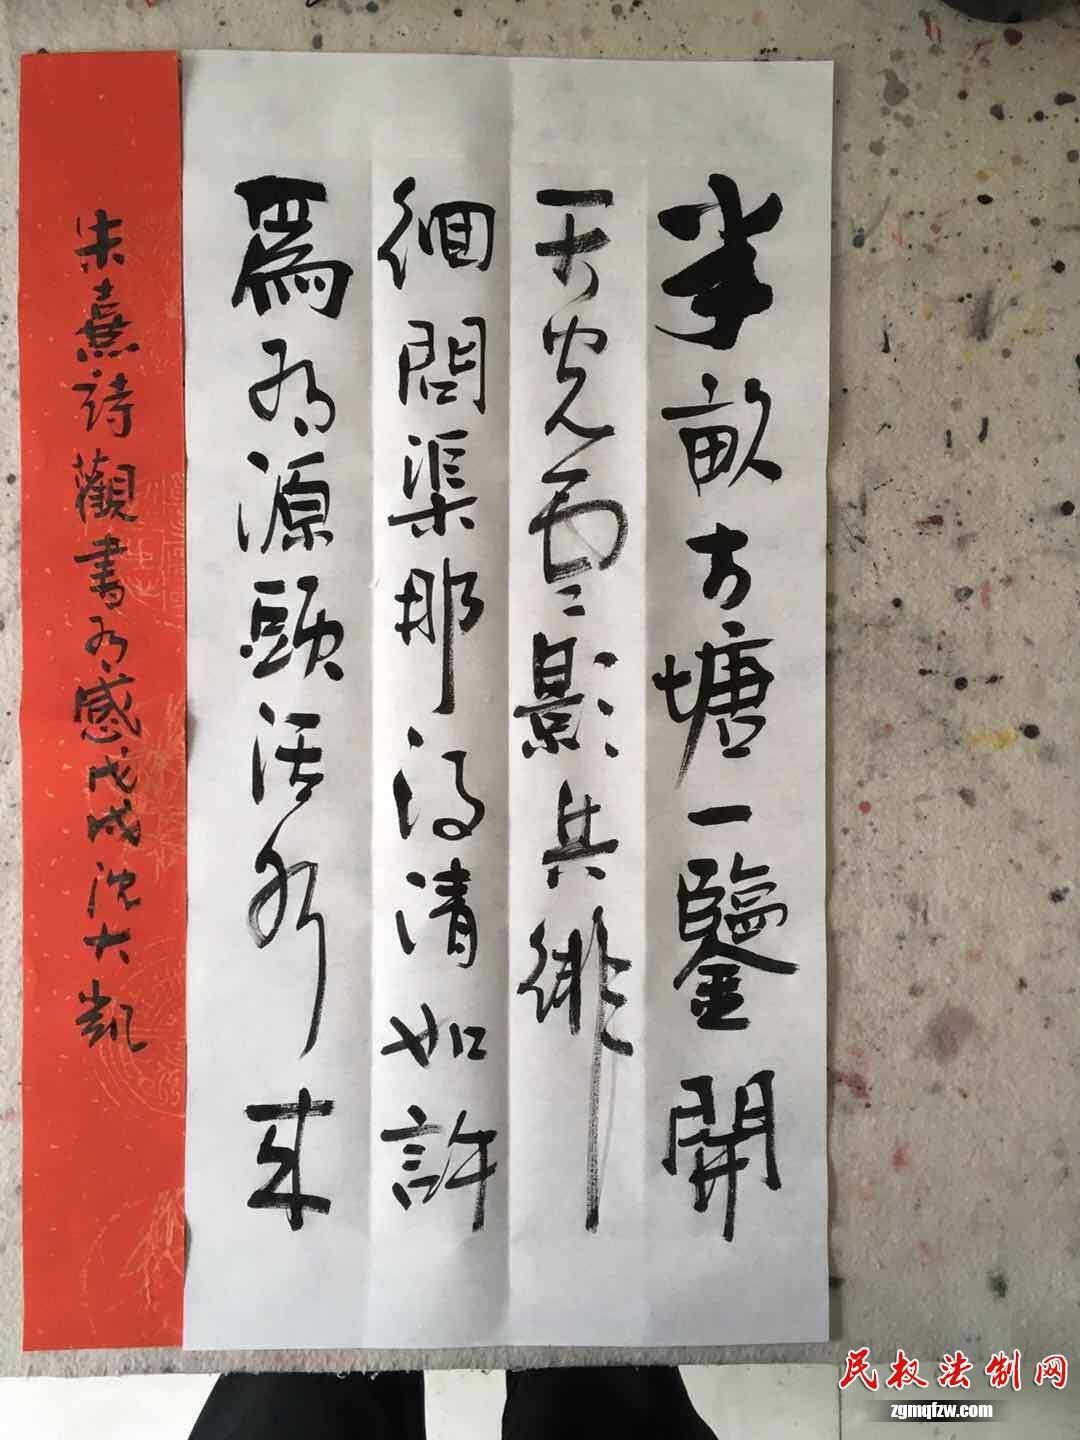 半畝方塘一鑒開
天光雲影共徘
徊問渠那得清如許
爲有源頭活水來
朱熹詩觀書有感戊戌沈大凱
民权法制网
zgmqfzw.com